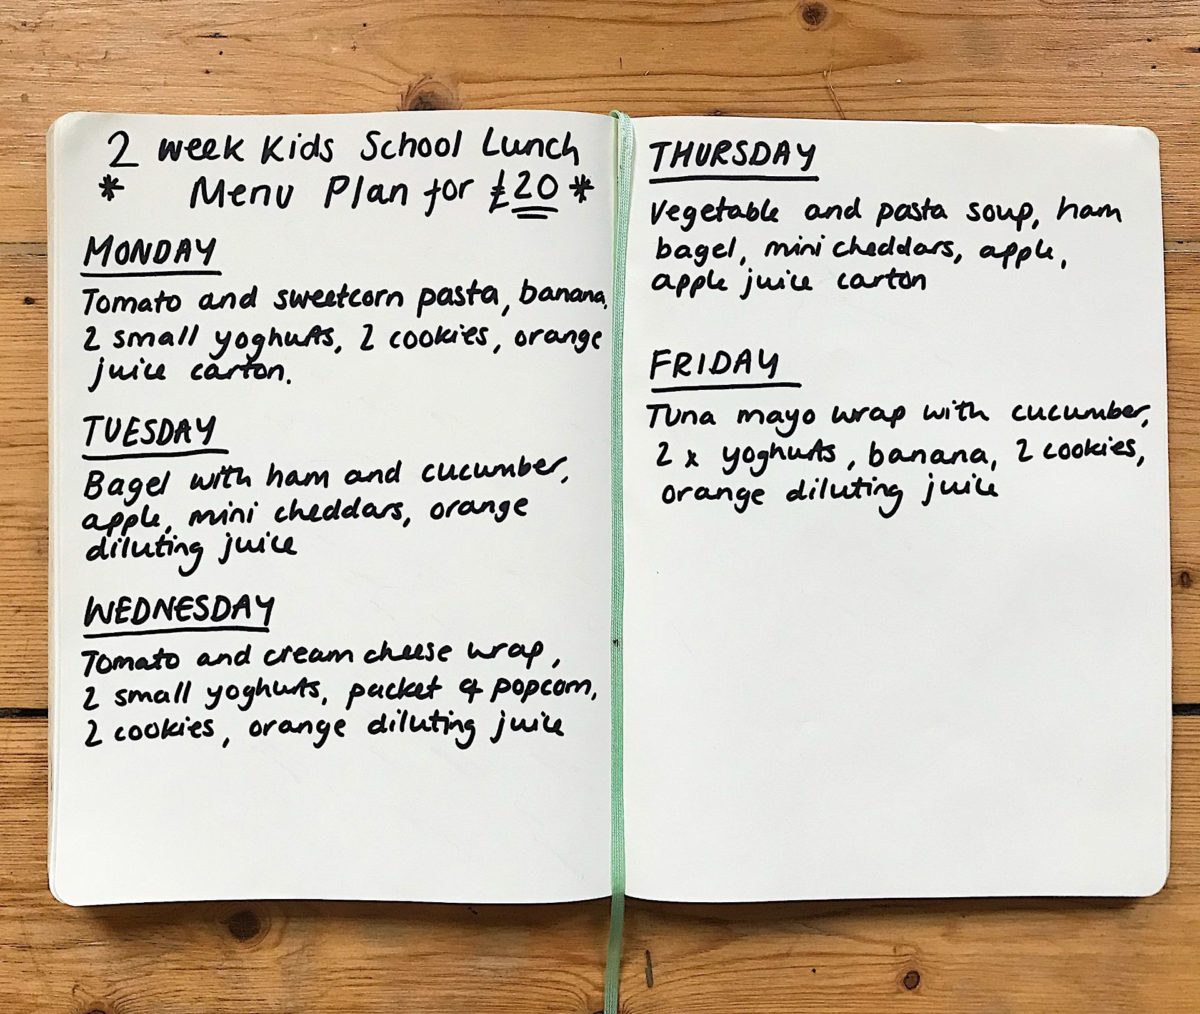 2 week Kids School Lunch
* Menu Plan for £20 *
MONDAY
Tomato and sweetcorn pasta, banana,
2 small yoghurts, 2 cookies, orange
juice carton.
TUESDAY
Bagel with ham and cucumber,
apple, mini cheddars, orange
diluting juice
WEDNESDAY
Tomato and cream cheese wrap,
2 small yoghurts, packet of popcorn,
2 cookies, orange diluting juice
THURSDAY
Vegetable and pasta soup, ham
bagel, mini cheddars, apple,
apple juice carton
FRIDAY
Tuna mayo wrap with cucumber,
2 x yoghurts, banana, 2 cookies,
orange diluting juice